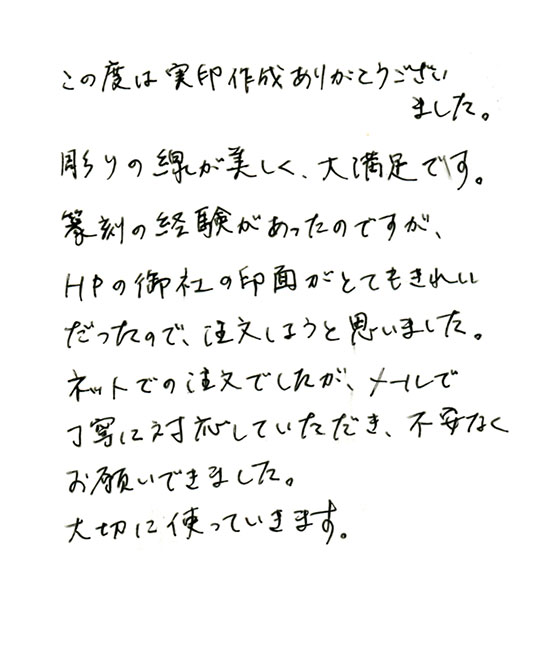 この度は実印作成ありがとうござい
ました。
彫りの線が美しく、大満足です。
篆刻の経験があったのですが、
HPの御社の印面がとてもきれい
だったので、注文しようと思いました。
ネットでの注文でしたが、メールで
丁寧に対応していただき、不安なく
お願いできました。
大切に使っていきます。